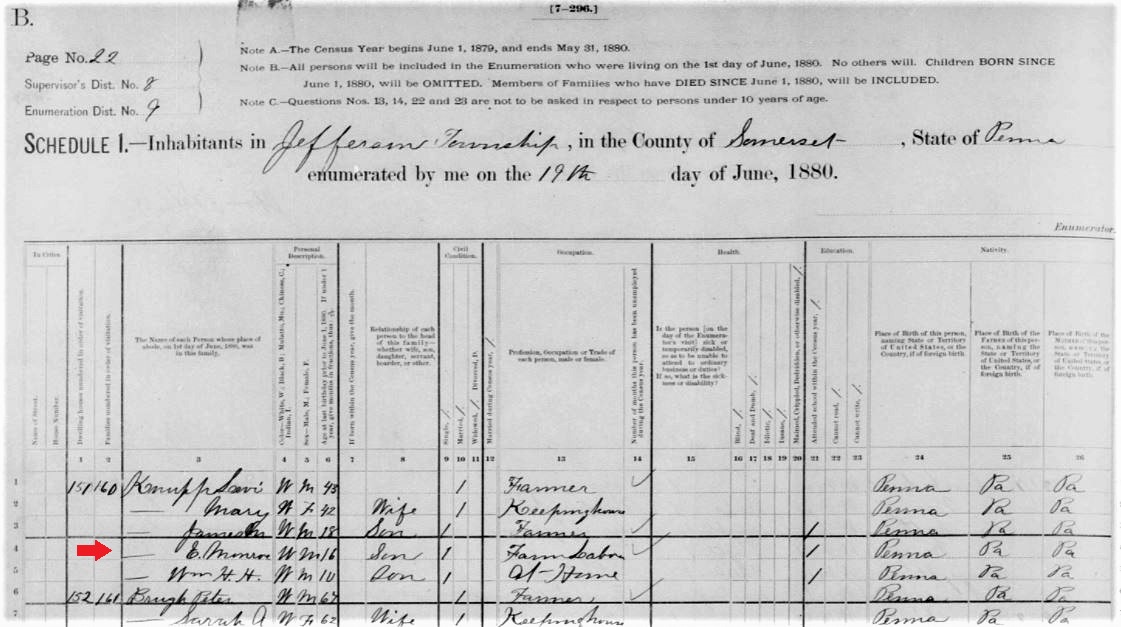 B.
[7-296.]
Page No. 22
Supervisor's Dist. No. 8
Enumeration Dist. No. 9
Note A.—The Census Year begins June 1, 1879, and ends May 31, 1880.
Note B.—All persons will be included in the Enumeration who were living on the 1st day of June, 1880. No others will. Children BORN SINCE
June 1, 1880, will be OMITTED. Members of Families who have DIED SINCE June 1, 1880, will be INCLUDED.
Note C.—Questions Nos. 13, 14, 22 and 23 are not to be asked in respect to persons under 10 years of age.
SCHEDULE 1.—Inhabitants in Jefferson Township, in the County of Somerset, State of Penna
enumerated by me on the 19th day of June, 1880.
Enumerator.
In Cities.
Name of Street.
House Number.
Dwelling houses numbered in order of visitation.
Families numbered in order of visitation.
The Name of each Person whose place of abode, on 1st day of June, 1880, was in this family.
Personal Description.
Color—White, W.; Black, B.; Mulatto, Mu.; Chinese, C.; Indian, I.
Sex—Male, M.; Female, F.
Age at last birthday prior to June 1, 1880. If under 1 year, give months in fractions, thus
If born within the Census year, give the month.
Relationship of each person to the head of this family—whether wife, son, daughter, servant, boarder, or other.
Civil Condition.
Single, /.
Married, /.
Widowed, /. Divorced, D.
Married during Census year, /.
Occupation.
Profession, Occupation or Trade of each person, male or female.
Number of months this person has been unemployed during the Census year.
Health.
Is the person [on the day of the Enumerator's visit] sick or temporarily disabled, so as to be unable to attend to ordinary business or duties? If so, what is the sickness or disability?
Blind, /.
Deaf and Dumb, /.
Idiotic, /.
Insane, /.
Maimed, Crippled, Bedridden, or otherwise disabled, /.
Education.
Attended school within the Census year, /.
Cannot read, /.
Cannot write, /.
Nativity.
Place of Birth of this person, naming State or Territory of United States, or the Country, if of foreign birth.
Place of Birth of the FATHER of this person, naming the State or Territory of United States, or the Country, if of foreign birth.
Place of Birth of the MOTHER of this person, naming the State or Territory of United States, or the Country, if of foreign birth.
1 2 3 4 5 6 7 8 9 10 11 12 13 14 15 16 17 18 19 20 21 22 23 24 25 26
1 151 160 Knupp Levi W M 43 / Farmer Penna Pa Pa
2 — Mary W F 42 Wife / Keeping house Penna Pa Pa
3 — James M W M 18 Son / Farmer / Penna Pa Pa
4 — E. Monroe W M 16 Son / Farm Labor / Penna Pa Pa
5 — Wm H. H. W M 10 Son / At Home / Penna Pa Pa
6 152 161 Brugh Peter W M 67 / Farmer Penna Pa Pa
7 — Sarah A W F 62 Wife / Keeping house Penna Pa Pa